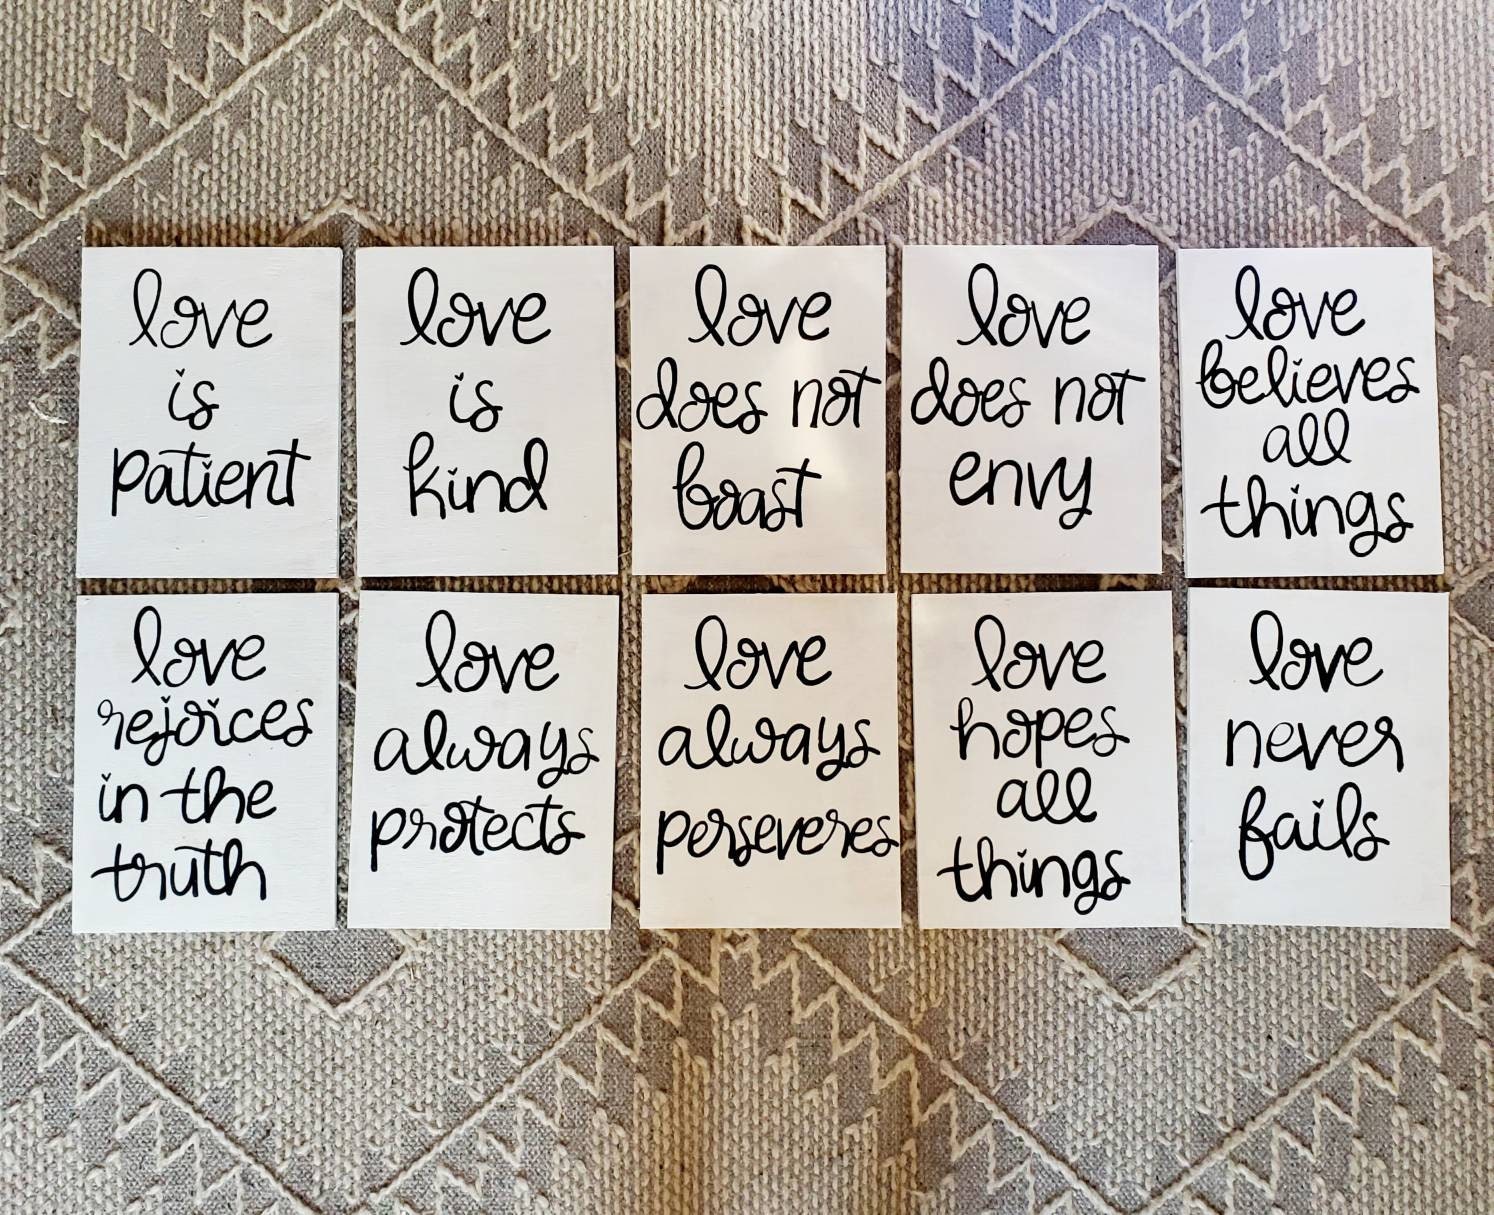 love
is
patient
love
is
kind
love
does not
boast
love
does not
envy
love
believes
all
things
love
rejoices
in the
truth
love
always
protects
love
always
perseveres
love
hopes
all
things
love
never
fails